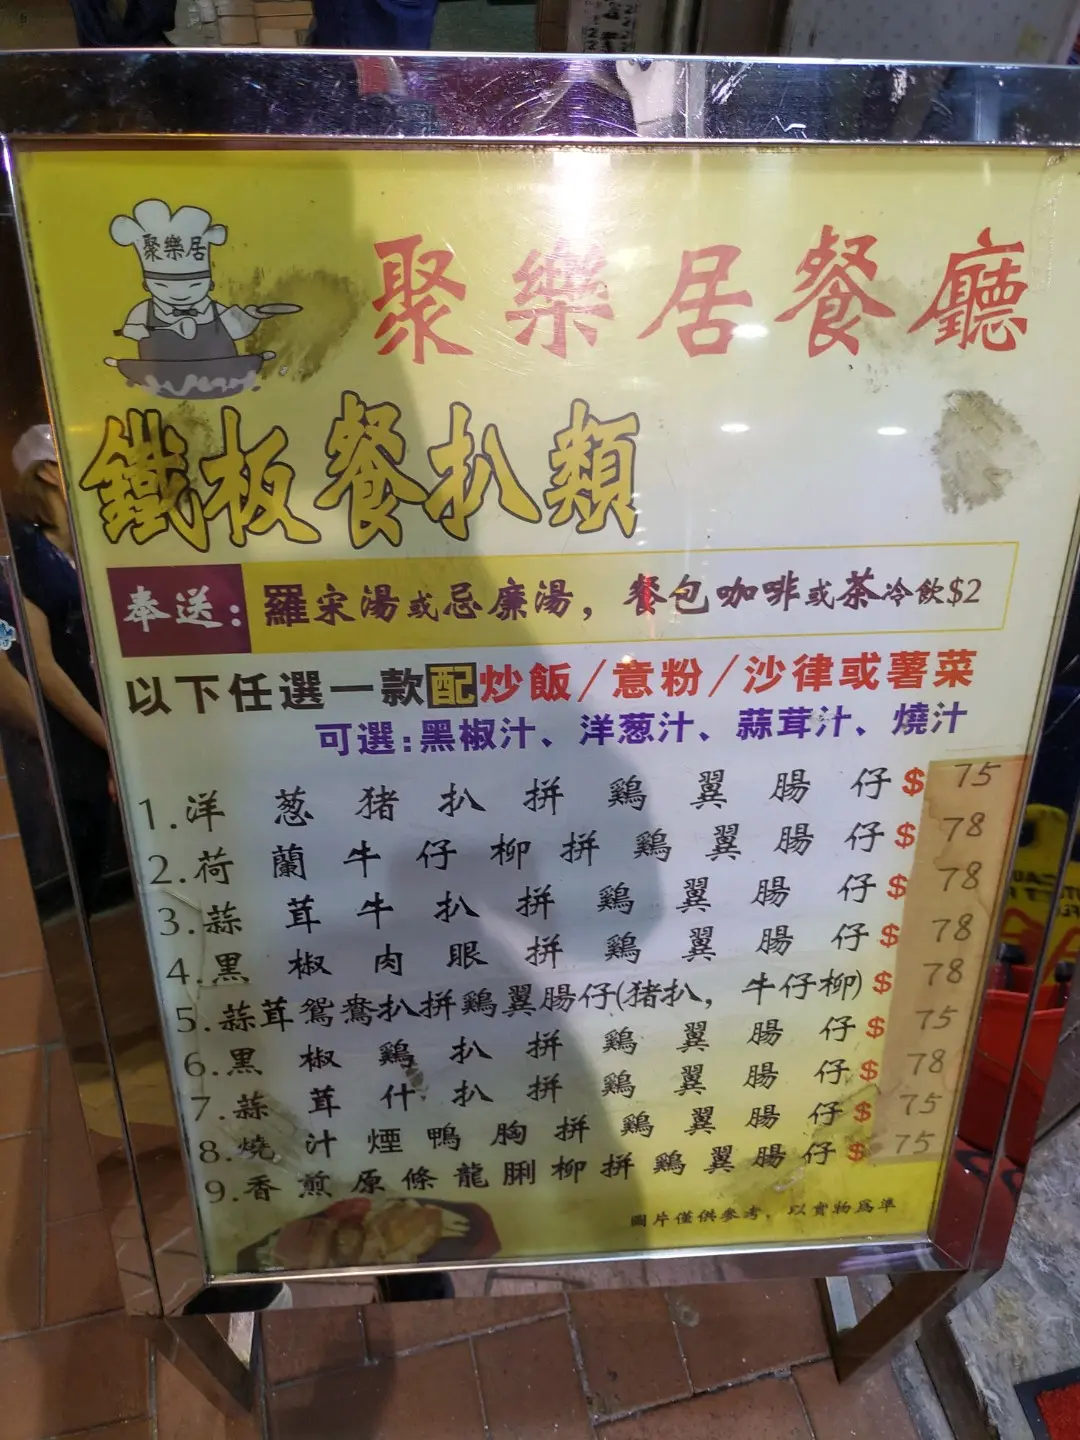 聚樂居
聚樂居餐廳
鐵板餐扒類
奉送: 羅宋湯或忌廉湯，餐包咖啡或茶冷飲$2
以下任選一款配炒飯/意粉/沙律或薯菜
可選:黑椒汁、洋葱汁、蒜茸汁、燒汁
1.洋葱猪扒拼鷄翼腸仔$75
2.荷蘭牛仔柳拼鷄翼腸仔$78
3.蒜茸牛扒拼鷄翼腸仔$78
4.黑椒肉眼拼鷄翼腸仔$78
5.蒜茸鴛鴦扒拼鷄翼腸仔(猪扒，牛仔柳)$78
6.黑椒鷄扒拼鷄翼腸仔$75
7.蒜茸什扒拼鷄翼腸仔$78
8.燒汁煙鴨胸拼鷄翼腸仔$75
9.香煎原條龍脷柳拼鷄翼腸仔$75
圖片僅供參考，以實物為準